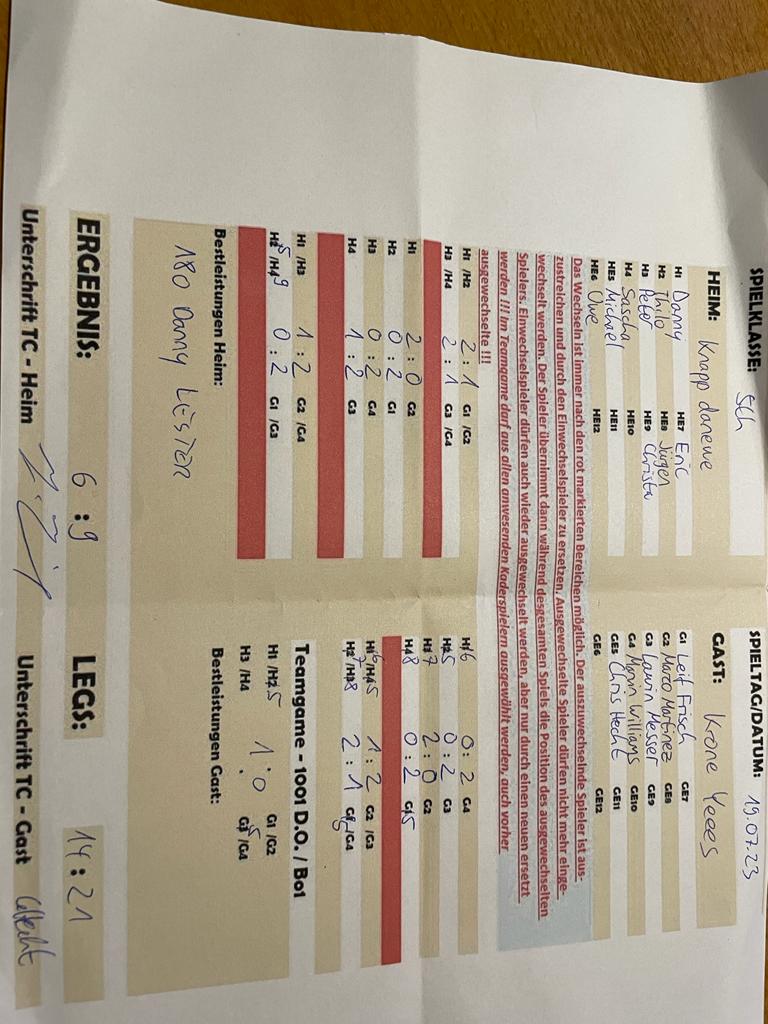 SPIELKLASSE: 5cH SPIELTAG/DATUM: 19.07.23
HEIM: Knapp daneve GAST: Krone Yeees
H1 Danny HE7 Eric G1 Leif Frisch GE7
H2 Thilo HE8 Jürgen G2 Marco Martinez GE8
H3 Peter HE9 Christa G3 Lauvin Messer GE9
H4 Sascha HE10 G4 Marvin Williams GE10
HE5 Michael HE11 GE5 Chris Hecht GE11
HE6 Uwe HE12 GE6 GE12
Das Wechseln ist immer nach den rot markierten Bereichen möglich. Der auszuwechselnde Spieler ist aus-
zustreichen und durch den Einwechselspieler zu ersetzen. Ausgewechselte Spieler dürfen nicht mehr einge-
wechselt werden. Der Spieler übernimmt dann während desgesamten Spiels die Position des ausgewechselten
Spielers. Einwechselspieler dürfen auch wieder ausgewechselt werden, aber nur durch einen neuen ersetzt
werden !!! Im Teamgame darf aus allen anwesenden Kaderspielern ausgewählt werden, auch vorher
ausgewechselte !!!
H1 /H2 2 : 1 G1 /G2
H3 /H4 2 : 1 G3 /G4
H1 2 : 0 G2
H2 0 : 2 G1
H3 0 : 2 G4
H4 1 : 2 G3
H1 /H3 1 : 2 G2 /G4
5 /9 0 : 2 G1 /G3
6 0 : 2 G4
5 0 : 2 G3
7 2 : 0 G2
8 0 : 2 5
6 /5 1 : 2 G2 /G3
7 /8 2 : 1 /G4
Teamgame - 1001 D.O. / Bo1
H1 /5 1 : 0 G1 /G2
H3 /H4 5 /G4
Bestleistungen Heim: Bestleistungen Gast:
180 Danny LESTER
ERGEBNIS: 6 : 9 LEGS: 14 : 21
Unterschrift TC - Heim Unterschrift TC - Gast